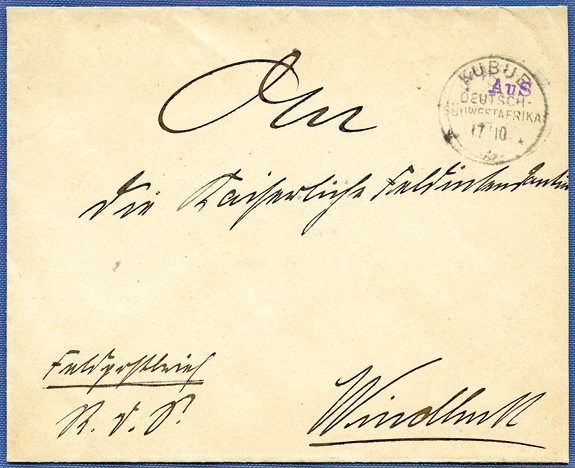 KUBUB
Aus
DEUTSCH-
SÜDWESTAFRIKA
17 10
An
die Kaiserliche Feldintendantur
Feldpostbrief
S. d. S.
Windhuk